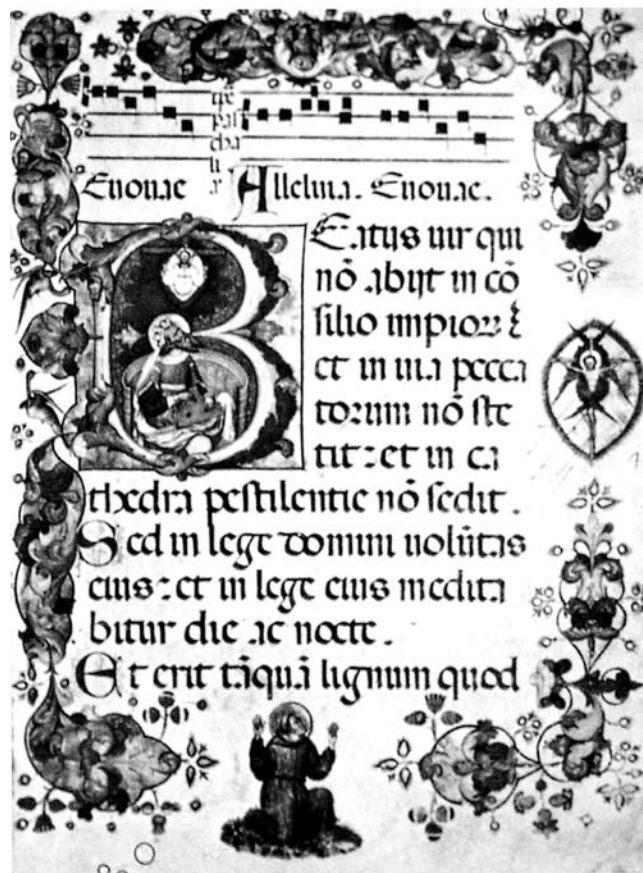 pas
cha
li
Euouae Alleluia. Euouae.
BEatus uir qui
nō abijt in cō
silio impioꝝ
et in uia pecca
torum nō ste
tit : et in ca
thedra pestilentie nō sedit.
Sed in lege domini uolūtas
eius : et in lege eius medita
bitur die ac nocte.
Et erit tāquā lignum quod